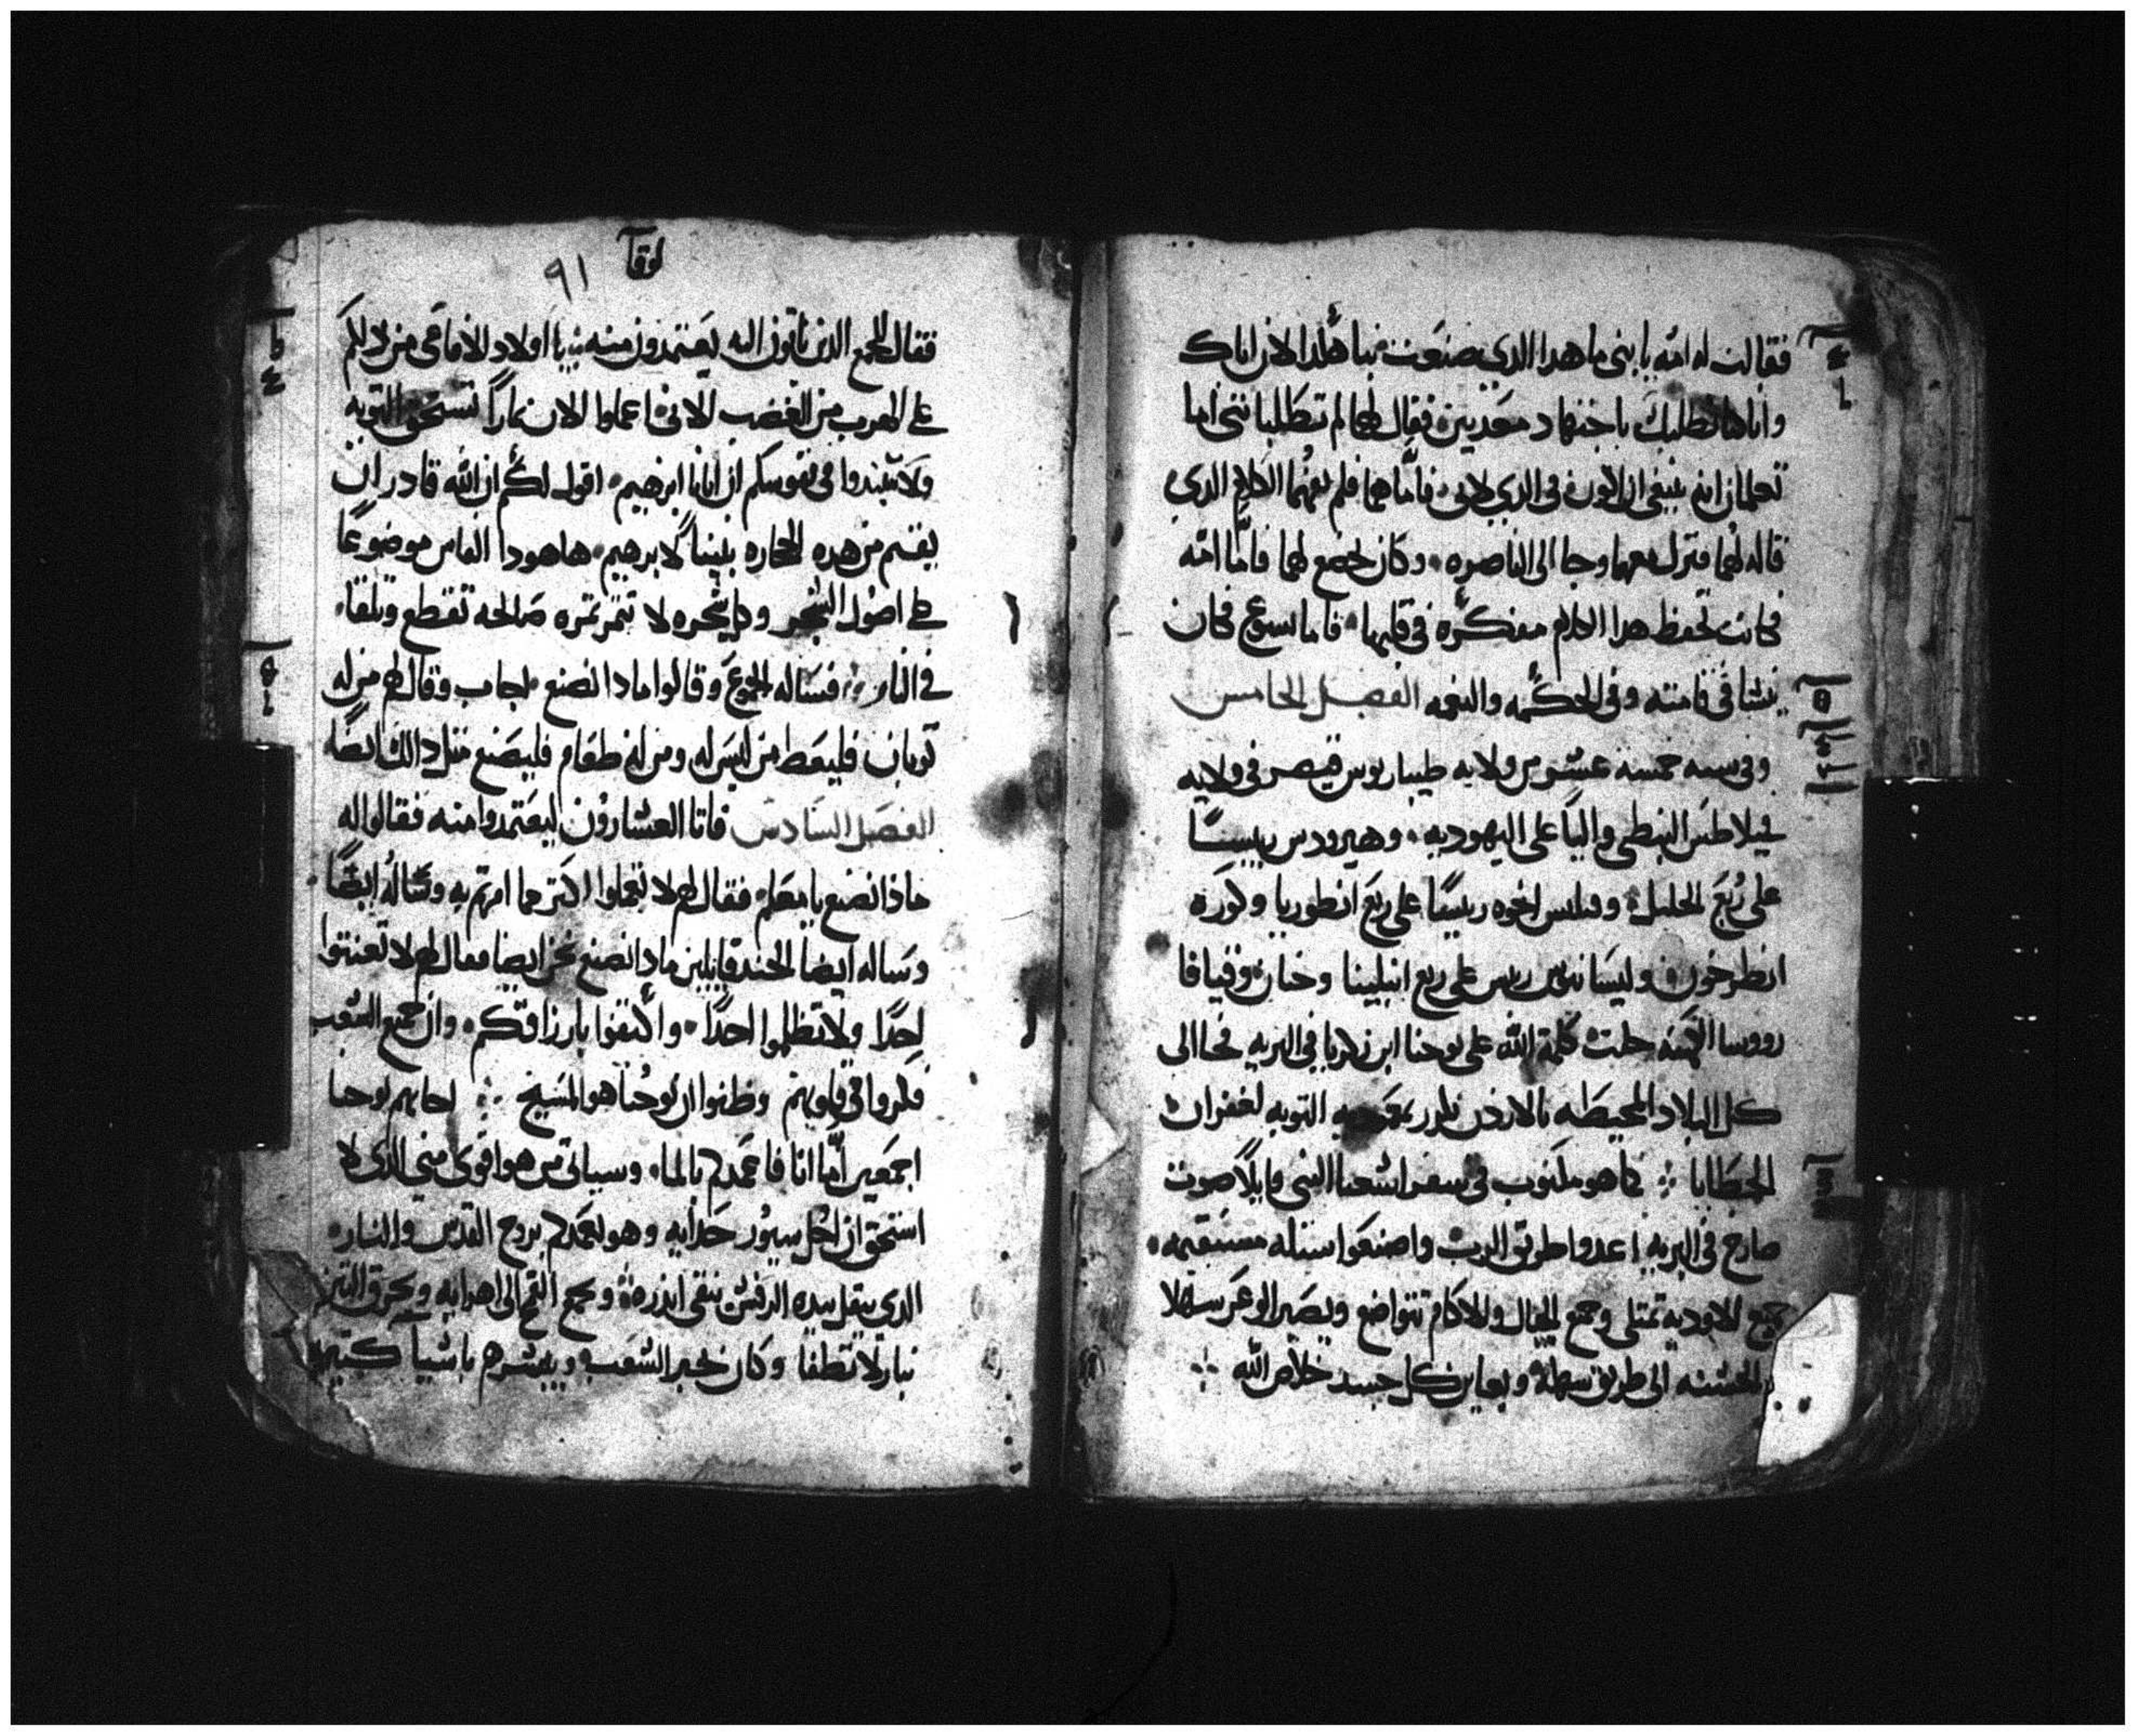 فقالت له امّه يا بنى ما هدا الدى صنعت بنا هكدا لان اباك
وانا كنا نطلبك باجتهاد معدبين فقال لهما لم تطلبانني اما
تعلمان انه ينبغى ان اكون فى الدى لابى فامّا هما فلم يفهما الكلام الدى
قاله لهما فنزل معهما وجا الى الناصره وكان يخضع لهما فامّا امّه
فكانت تحفظ هدا الكلام مفكره فى قلبها فاما يسوع فكان
ينشا فى قامته وفى الحكمه والنعمه الفصل الخامس
وفى سنه خمسه عشر من ولايه طيباريوس قيصر فى ولايه
فيلاطس البنطى واليًا على اليهوديه وهيرودس رييسًا
على رُبع الجليل وفيلبس اخوه رييسًا على ربع انطوريا وكوره
انطرخون وليسانيوس رييس على ربع ابيلينا وحنان وقيافا
رووسا الكهنه حلت كلمة الله على يوحنا ابن زكريا فى البريه فجا الى
كل البلاد المحيطه بالاردن يكرز بمعموديه التوبه لغفران
الخطايا كما هو مكتوب فى سفر اشعيا النبى قايلًا صوت
صارخ فى البريه اعدوا طريق الرب واصنعوا سبله مستقيمه
جميع الاوديه تمتلى وجميع الجبال والاكام تتواضع ويصير الوعر سهلا
والخشنه الى طريق سهله ويعاين كل جسد خلاص الله
لوقا
٩١
فقال للجمع الدين ياتون اليه يعتمدون منه يا اولاد الافاعى من دلكم
على الهرب من الغضب الاتى اعملوا الان ثمارًا تستحق التوبه
ولا تبتدوا فى نفوسكم ان ابانا ابرهيم اقول لكم ان الله قادر ان
يقيم من هده الحجاره بنينًا لابرهيم ها هودا الفاس موضوعًا
على اصول الشجر وكل شجره لا تثمر ثمره صالحه تقطع وتلقا
فى النار فساله الجموع وقالوا مادا نصنع اجاب وقال لهم من له
توبان فليعط من ليس له ومن له طعام فليصنع مثل دالك ايضًا
الفصل السّادس فاتا العشارون ليعتمدوا منه فقالوا له
ماذا نصنع يا معلم فقال لهم لا تعملوا اكثر مما امرتم به وساله ايضًا
وساله ايضًا الجند قايلين مادا نصنع نحن ايضا فقال لهم لا تعنتوا
احدًا ولا تظلموا احدًا واكتفوا بارزاقكم وان جميع الشعب
فكروا فى قلوبهم وظنوا ان يوحنا هو المسيح اجابهم يوحنا
اجمعين امّا انا فاعمدكم بالما وسياتى من هو اقوى منى الدى لا
استحق ان احل سيور حدايه وهو يعمدكم بروح القدس والنار
الدى بيده الرفش ينقى اندره ويجمع القمح الى اهرايه ويحرق التبن
بنار لا تطفا وكان يخبر الشعب ويبشرهم باشيا كثيره